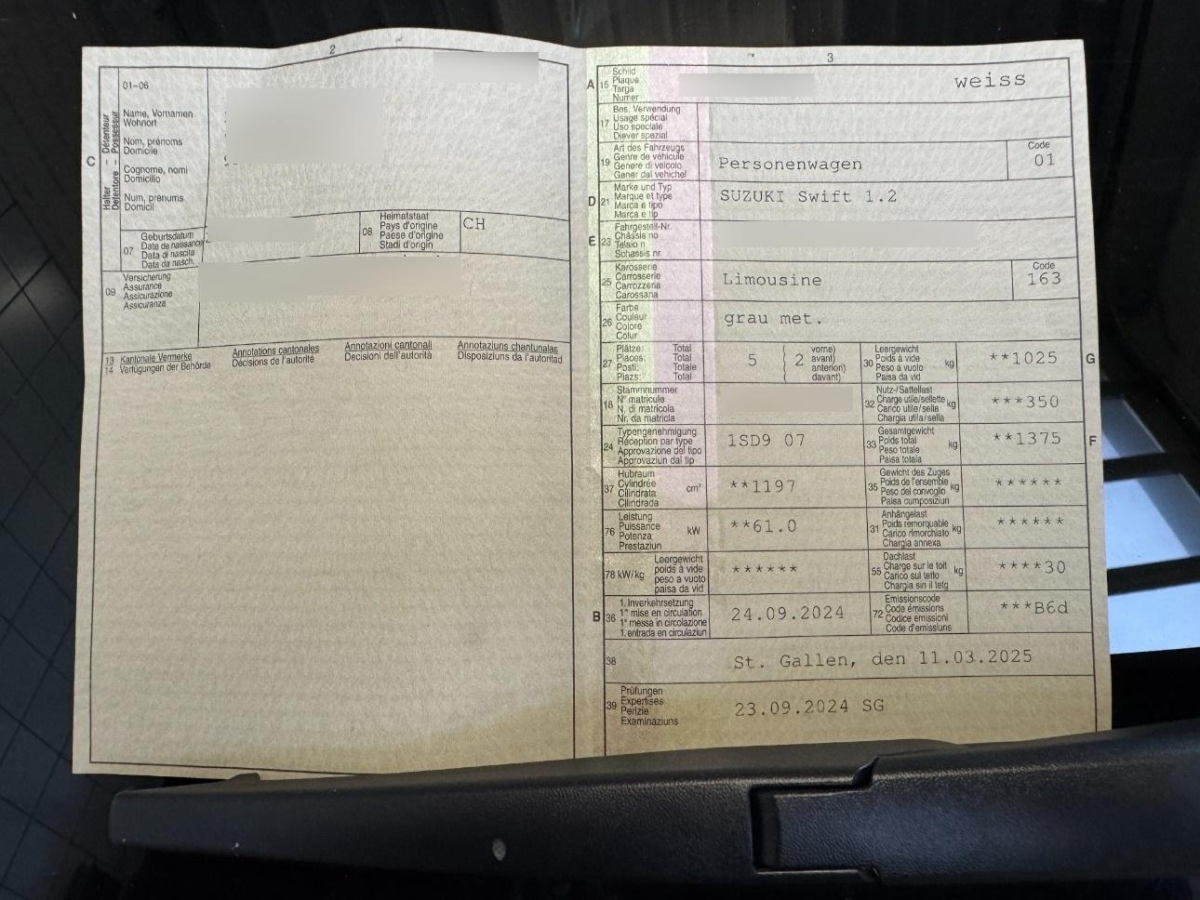 2
01-06
Halter - Détenteur
Detentore - Possessur
C
Name, Vornamen
Wohnort
Nom, prénoms
Domicile
Cognome, nomi
Domicilio
Num, prenums
Domicil
07
Geburtsdatum
Date de naissance
Data di nascita
Data da nasch.
08
Heimatstaat
Pays d'origine
Paese d'origine
Stadi d'origin
CH
09
Versicherung
Assurance
Assicurazione
Assicuranza
13 Kantonale Vermerke
14 Verfügungen der Behörde
Annotations cantonales
Décisions de l'autorité
Annotazioni cantonali
Decisioni dell'autorità
Annotaziuns chantunalas
Disposiziuns da l'autoritad
3
A 15
Schild
Plaque
Targa
Numer
weiss
17
Bes. Verwendung
Usage spécial
Uso speciale
Diever spezial
19
Art des Fahrzeugs
Genre de véhicule
Genere di veicolo
Gener dal vehichel
Personenwagen
Code
01
D 21
Marke und Typ
Marque et type
Marca e tipo
Marca e tip
SUZUKI Swift 1.2
E 23
Fahrgestell-Nr.
Châssis no
Telaio n.
Schassis nr.
25
Karosserie
Carrosserie
Carrozzeria
Carossaria
Limousine
Code
163
26
Farbe
Couleur
Colore
Colur
grau met.
27
Plätze: Total
Places: Total
Posti: Totale
Plazs: Total
5
2
vorne)
avant)
anteriori)
davant)
30
Leergewicht
Poids à vide
Peso a vuoto
Paisa da vid
kg
**1025
G
18
Stammnummer
N° matricule
N. di matricola
Nr. da matricla
32
Nutz-/Sattellast
Charge utile/sellette
Carico utile/sella
Chargia utila/sella
kg
***350
24
Typengenehmigung
Réception par type
Approvazione del tipo
Approvaziun dal tip
1SD9 07
33
Gesamtgewicht
Poids total
Peso totale
Paisa totala
kg
**1375
F
37
Hubraum
Cylindrée
Cilindrata
Cilindrada
cm³
**1197
35
Gewicht des Zuges
Poids de l'ensemble
Peso del convoglio
Paisa cumposiziun
kg
******
76
Leistung
Puissance
Potenza
Prestaziun
kW
**61.0
31
Anhängelast
Poids remorquable
Carico rimorchiato
Chargia annexa
kg
******
78 kW/kg
Leergewicht
poids à vide
peso a vuoto
paisa da vid
******
55
Dachlast
Charge sur le toit
Carico sul tetto
Chargia sin il tetg
kg
****30
B 36
1. Inverkehrsetzung
1re mise en circulation
1a messa in circolazione
1. entrada en circulaziun
24.09.2024
72
Emissionscode
Code émissions
Codice emissioni
Code d'emissiuns
***B6d
38
St. Gallen, den 11.03.2025
39
Prüfungen
Expertises
Perizie
Examinaziuns
23.09.2024 SG